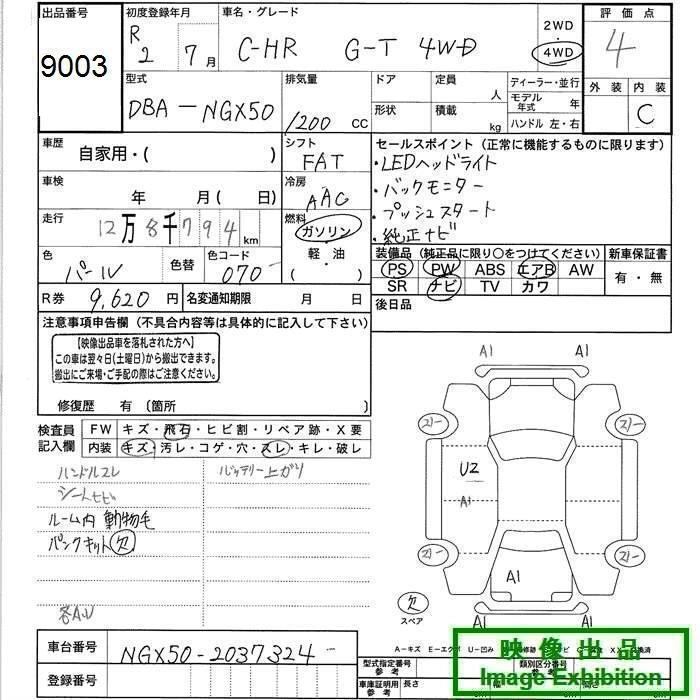 出品番号 初度登録年月 車名・グレード 2WD 評価点
9003 R2 7月 C-HR G-T 4WD 4WD 4
外装 内装
C
型式 排気量 ドア 定員 人 ディーラー・並行
DBA-NGX50 1200 CC 形状 積載 kg モデル年式 年
ハンドル 左・右
車歴 自家用・( ) シフト FAT セールスポイント(正常に機能するものに限ります)
・LEDヘッドライト
車検 年 月( 日) 冷房 AAC ・バックモニター
・プッシュスタート
走行 12万8千794km 燃料 ガソリン・軽油・( ) ・純正ナビ
色 パール 色替 色コード 070 装備品(純正品に限り○をつけてください) 新車保証書
PS PW ABS エアB AW 有・無
SR ナビ TV カワ
R券 9,620円 名変通知期限 月 日 後日品
注意事項申告欄(不具合内容等は具体的に記入して下さい)
【映像出品車を落札された方へ】
この車は翌々日(土曜日)から搬出できます。
搬出にご来場・ご手配の際はご注意ください。
修復歴 有(箇所 )
検査員記入欄 FW キズ・飛石・ヒビ割・リペア跡・X要
内装 キズ・汚レ・コゲ・穴・スレ・キレ・破レ
ハンドルスレ バッテリー上ガリ
ルーム内 動物毛
パンクキット欠
A1 A1
U2
A1
A1
A1 A1
欠
スペア
A-キズ E-エクボ U-凹み
車台番号 NGX50-2037324
登録番号
型式指定番号 参考 類別区分番号 参考
車庫証明用 参考 長さ
映像出品
Image Exhibition